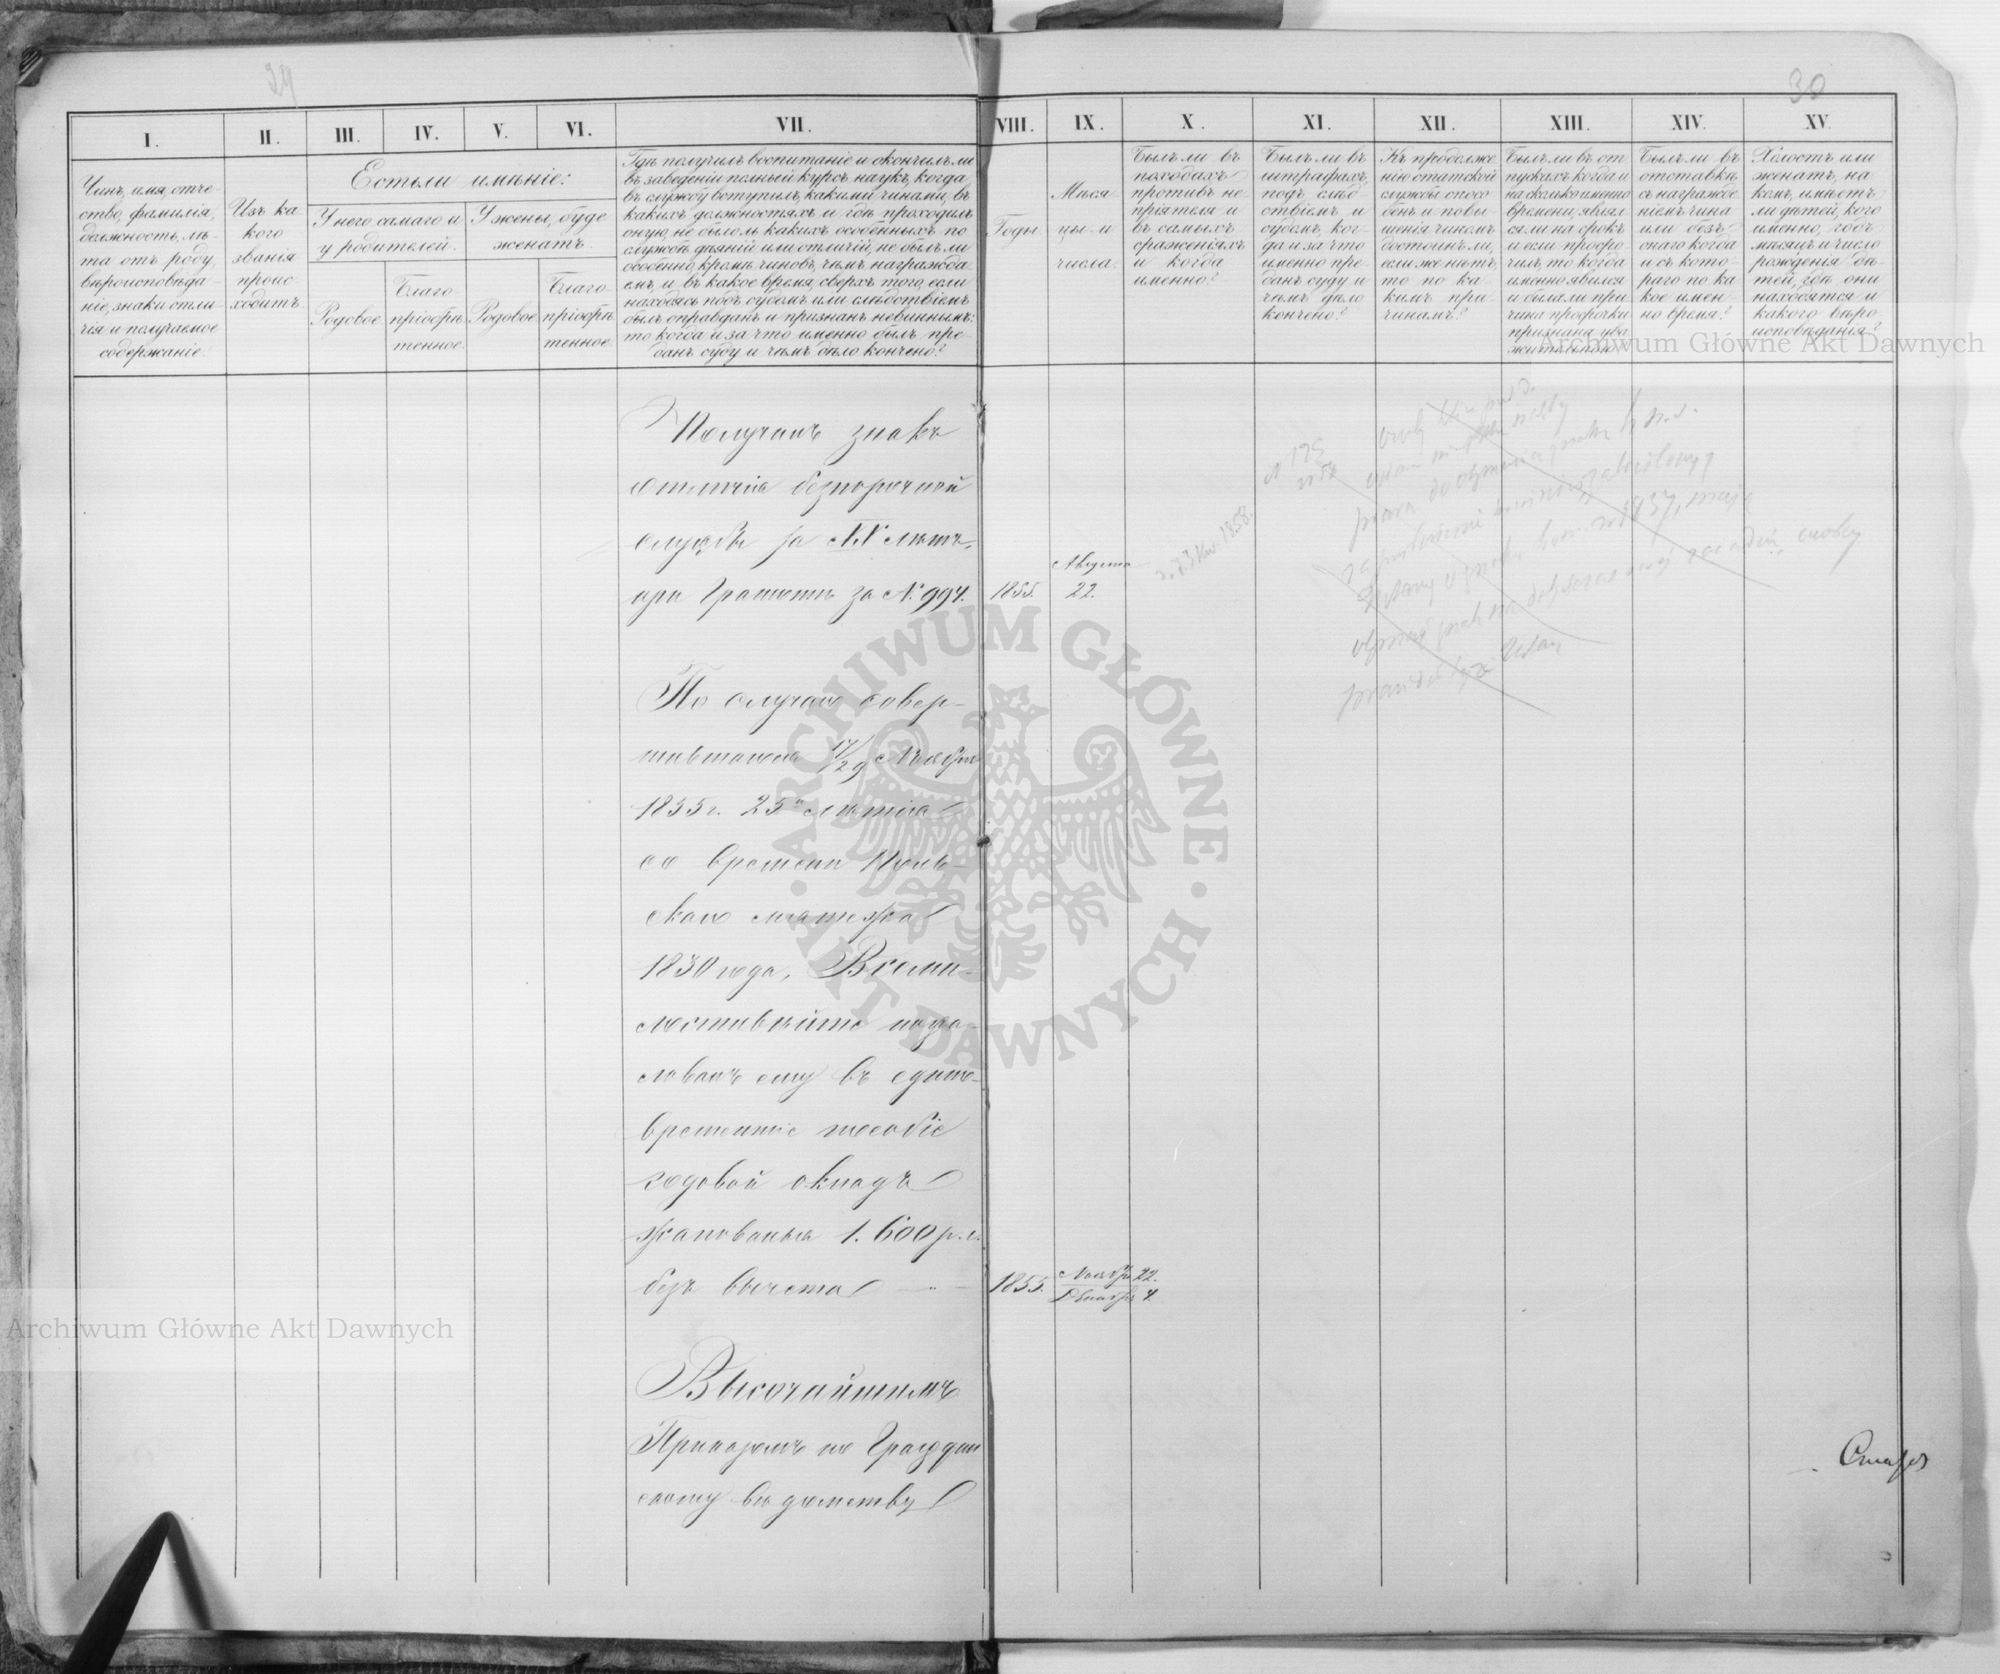 29
30
I.
II.
III.
IV.
V.
VI.
VII.
VIII.
IX.
X.
XI.
XII.
XIII.
XIV.
XV.
Чинъ, имя, отче
ство, фамилія,
должность, лѣ
та отъ роду,
вѣроисповѣда-
ніе, знаки отли-
чія и получаемое
содержаніе.
Изъ ка-
кого
званія
проис-
ходитъ.
Естьли имѣніе:
У него самаго и
у родителей.
У жены, буде
женатъ.
Родовое
Благо-
пріобрѣ
тенное.
Родовое
Благо-
пріобрѣ
тенное
Гдѣ получилъ воспитаніе и окончилъ ли
въ заведеніи полный курсъ наукъ, когда
въ службу вступилъ, какими чинами, въ
какихъ должностяхъ и гдѣ проходилъ
оную, не было ль какихъ особенныхъ по
службѣ дѣяній или отличій, не былъ ли
особенно, кромѣ чиновъ, чѣмъ награжда-
емъ, и въ какое время, сверхъ того, если
находясь подъ судомъ или слѣдствіемъ
былъ оправданъ и признанъ невиннымъ:
то когда и за что именно былъ пре-
данъ суду и чѣмъ дѣло кончено?
Годы.
Мѣся-
цы и
числа.
Былъ ли въ
походахъ
противъ не-
пріятеля и
въ самыхъ
сраженіяхъ
и когда
именно?
Былъ ли въ
штрафахъ,
подъ слѣд-
ствіемъ и
судомъ, ког-
да и за что
именно пре-
данъ суду и
чѣмъ дѣло
кончено?
Къ продолже
нію статской
службы спосо
бенъ и повы-
шенія чиномъ
достоинъ ли,
если же нѣтъ,
то по ка-
кимъ при-
чинамъ?
Былъ ли въ от
пускахъ когда и
на сколько именно
времени, являл-
ся ли на срокъ
и если просро-
чилъ, то когда
именно явился
и была ли при
чина просрочки
признана ува
жительною
Былъ ли въ
отставкѣ
съ награжде
ніемъ чина
или безъ
онаго когда
и съ кото-
раго по ка
кое имен-
но время?
Холостъ или
женатъ, на
комъ, имѣетъ
ли дѣтей, кого
именно, годъ
мѣсяцъ и число
рожденія дѣ-
тей, гдѣ они
находятся и
какого вѣро
исповѣданія?
Получилъ знакъ
отличія безпорочной
службы за XX лѣтъ,
при Грамотѣ за №. 994.
1855.
Августа
22.
По случаю совер-
шившагося 17/29 Ноября
1855 г. 25 лѣтія
со времени Поль-
скаго мятежа
1830 года, Всеми-
лостивѣйше пожа-
лованъ ему въ едино-
временное пособіе
годовой окладъ
жалованья 1.600 р.с.
безъ вычета
1855.
Ноября 22.
Декабря 4.
Высочайшимъ
Приказомъ по Граждан
скому вѣдомству
Archiwum Główne Akt Dawnych
ARCHIWUM GŁÓWNE
AKT DAWNYCH
Archiwum Główne Akt Dawnych